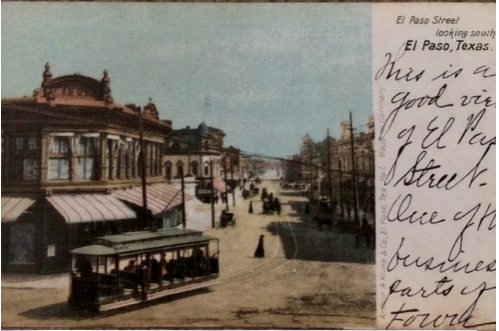 El Paso Street
looking south
El Paso, Texas.
This is a
good vie
of El Pas
Street.
One of th
business
parts of
Town
Made in Germany